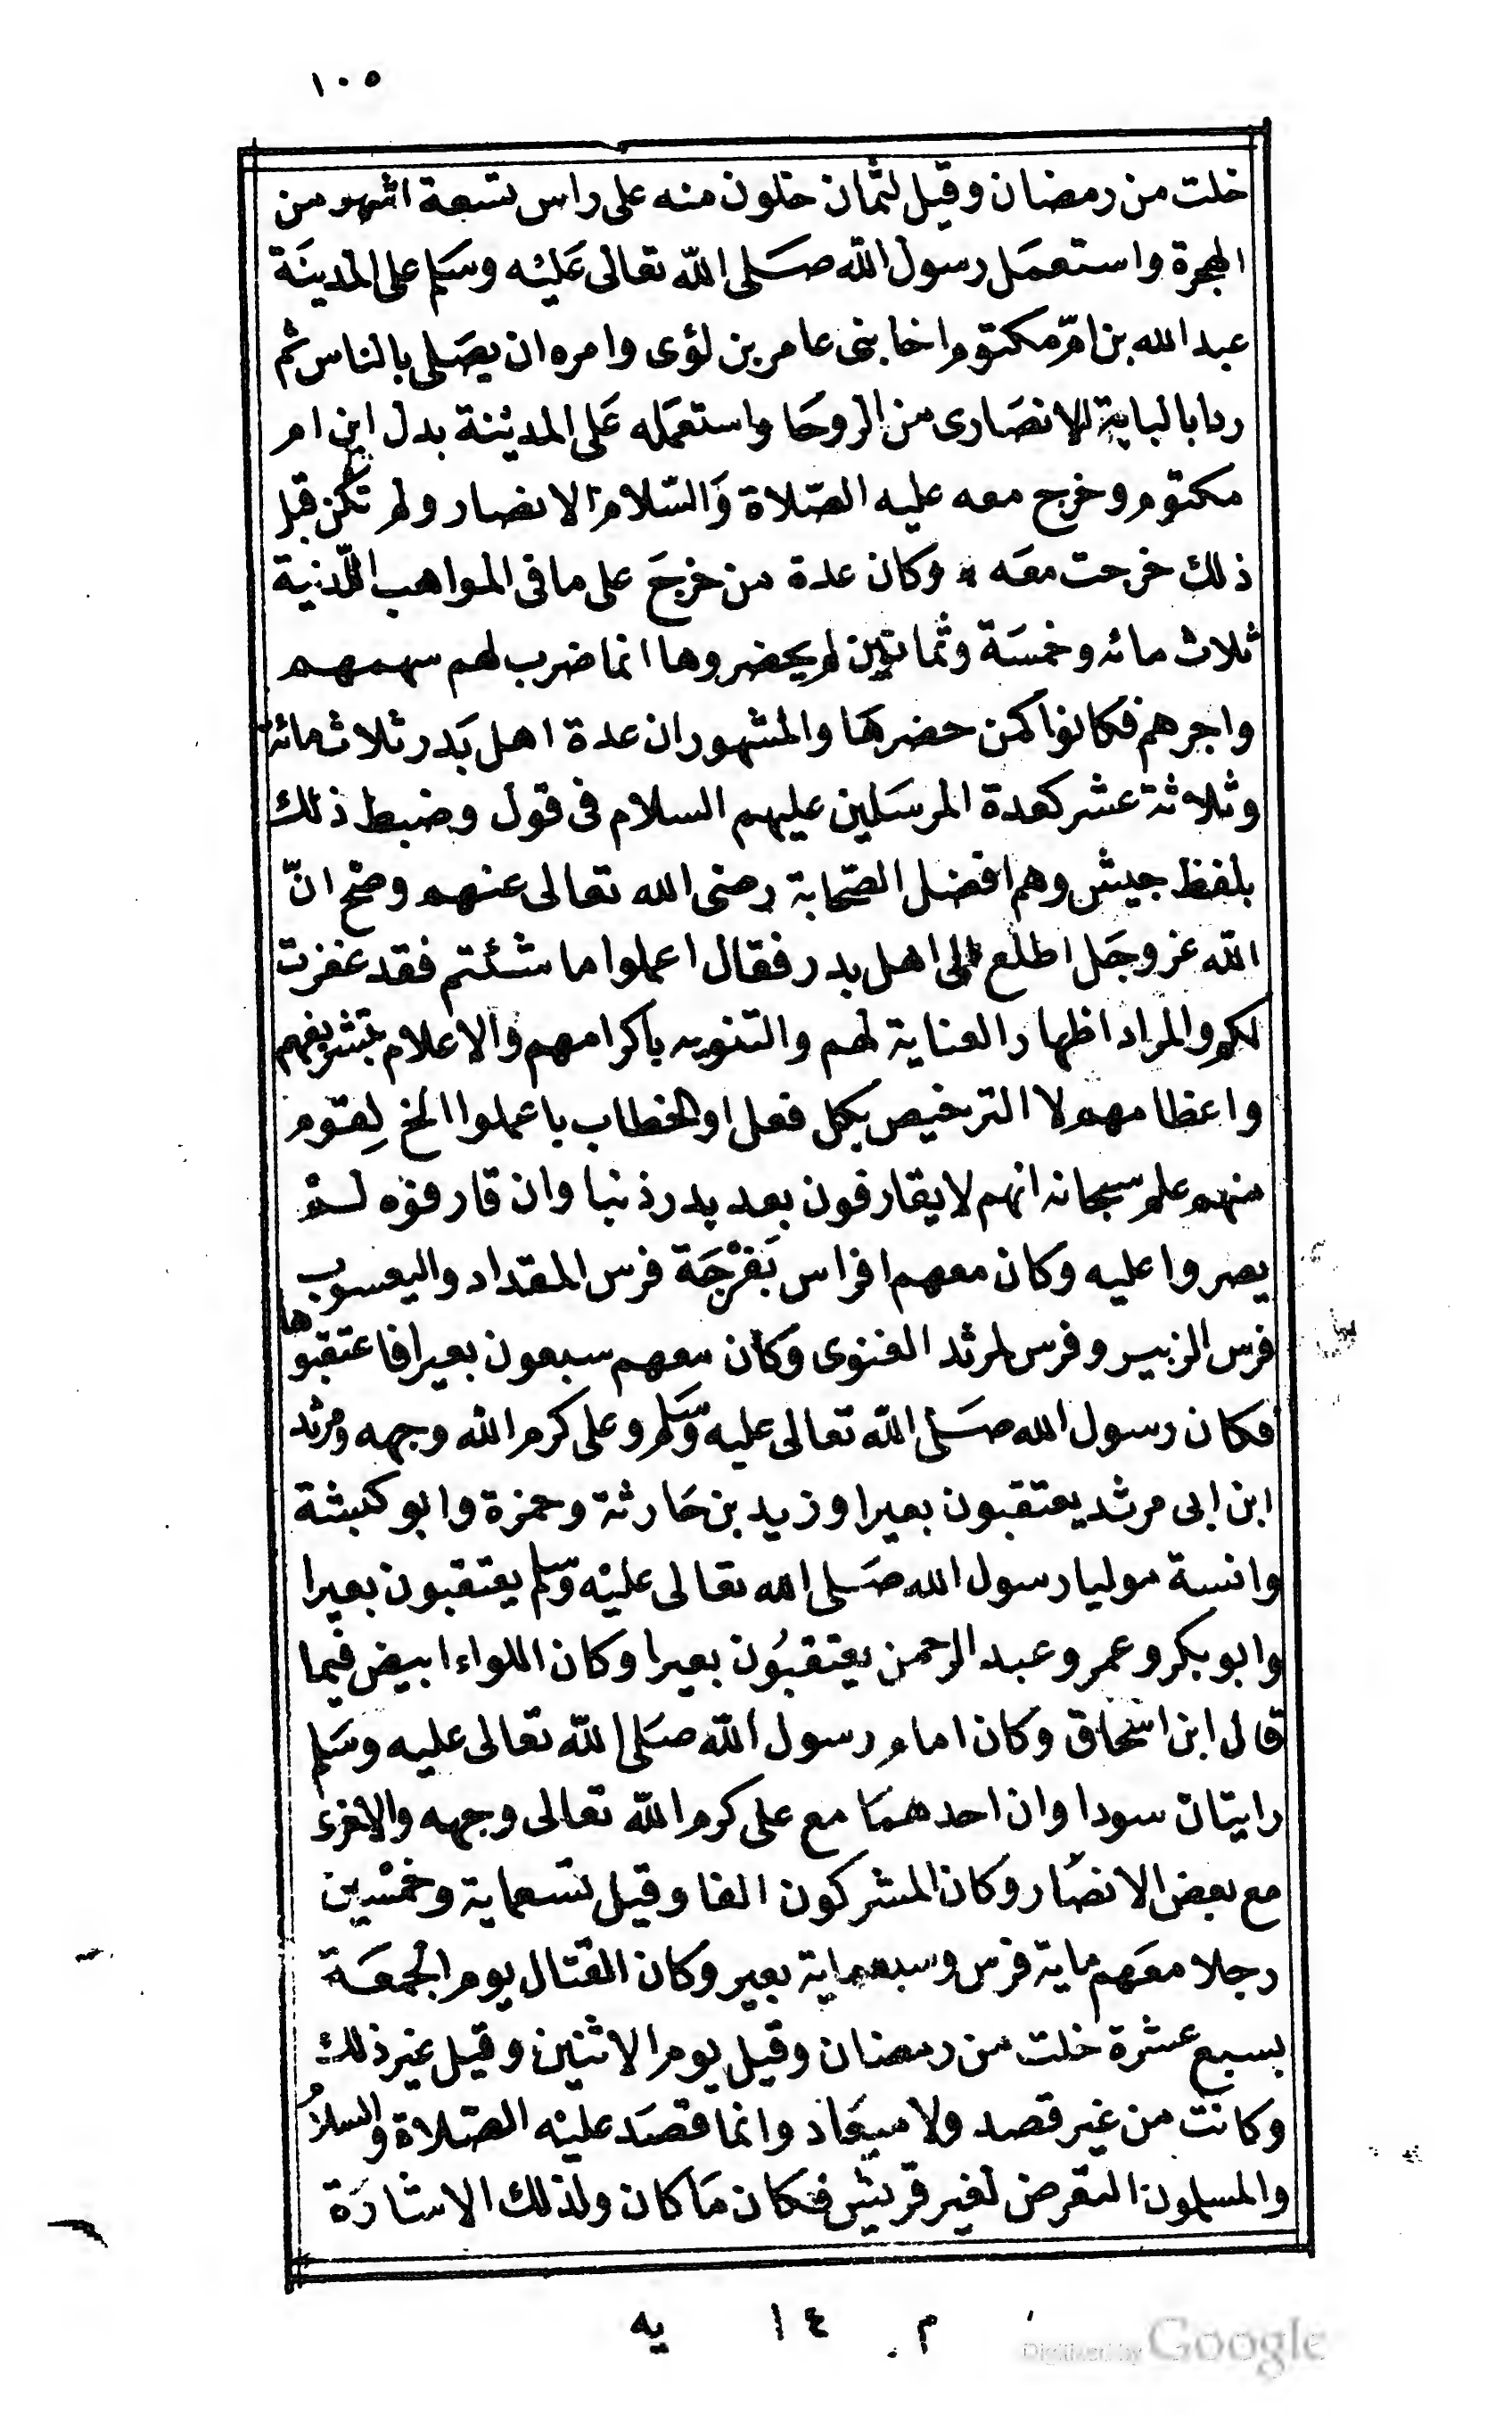 ١٠٥
خلت من رمضان وقيل لثمان خلون منه على راس تسعة اشهر من
الهجرة واستعمَل رسول الله صَلى الله تعالى عَليْه وسَلم على المدينَة
عبد الله بن امّ مكتوم اخا بنى عامر بن لؤى وامره ان يصَلى بالناس ثم
رد ابا لبابة الانصَارى من الروحَا واستعمَله عَلى المدينة بدل ابن ام
مكتوم وخرج معه عليه الصّلاة وَالسّلام الانصار ولم تكن قبل
ذلك خرجت معَه * وكان عدة من خرجَ على ما فى المواهب اللّدنية
ثلاث مائه وخمسَة وثمانين لم يحضروها انما ضرب لهم سهمهم
واجرهم فكانوا كمن حضرهَا والمشهور ان عدة اهل بَدر ثلاث مائة
وثلاثة عشر كعدة المرسَلين عليهم السلام فى قول وضبط ذلك
بلفظ جيش وهم افضل الصّحابة رضى الله تعالى عنهم وصح انّ
الله عز وجَل اطلع الى اهل بدر فقال اعملوا ما شئتم فقد غفرت
لكم والمراد اظهار العناية لهم والتنويه باكرامهم والاعلام بتشريفهم
واعظامهم لا الترخيص بكل فعل او الخطاب باعملوا الخ لِقوم
منهم علم سبحانه انهم لا يقارفون بعد بدر ذنبا وان قارفوه لم
يصروا عليه وكان معهم افراس بَعْرْجَة فرس المقداد واليعسوب
فرس الزبير وفرس لمرثد الغنوى وكان معهم سبعون بعيرا فاعتقبوها
فكان رسول الله صَلى الله تعالى عليه وسَلم وعلى كرم الله وجهه ومرثد
ابن ابى مرثد يعتقبون بعيرا وزيد بن حَارثة وحمزة وابو كبشة
وانسة موليا رسول الله صَلى الله تعالى عليْه وسَلم يعتقبون بعيرا
وابو بكر وعمر وعبد الرحمن يعتقبُون بعيرا وكان اللواء ابيض فيما
قال ابن اسْحاق وكان امام رسول الله صَلى الله تعالى عليه وسَلم
رايتان سودا وان احدهمَا مع على كرم الله تعالى وجهه والاخرى
مع بعض الانصَار وكان المشركون الفا وقيل تسعماية وخمسْين
رجلا معَهم ماية فرس وسبعماية بعير وكان القتال يوم الجمعَة
بسبع عشرة خلت من رمضان وقيل يوم الاثنين وقيل غير ذلك
وكانت من غير قصد ولا ميعَاد وانما قصَد عليْه الصّلاة والسلامُ
والمسلمون التعرض لعير قريش فكان مَا كان ولذلك الاشارَة
م ١٤ يه
Digitized by Google